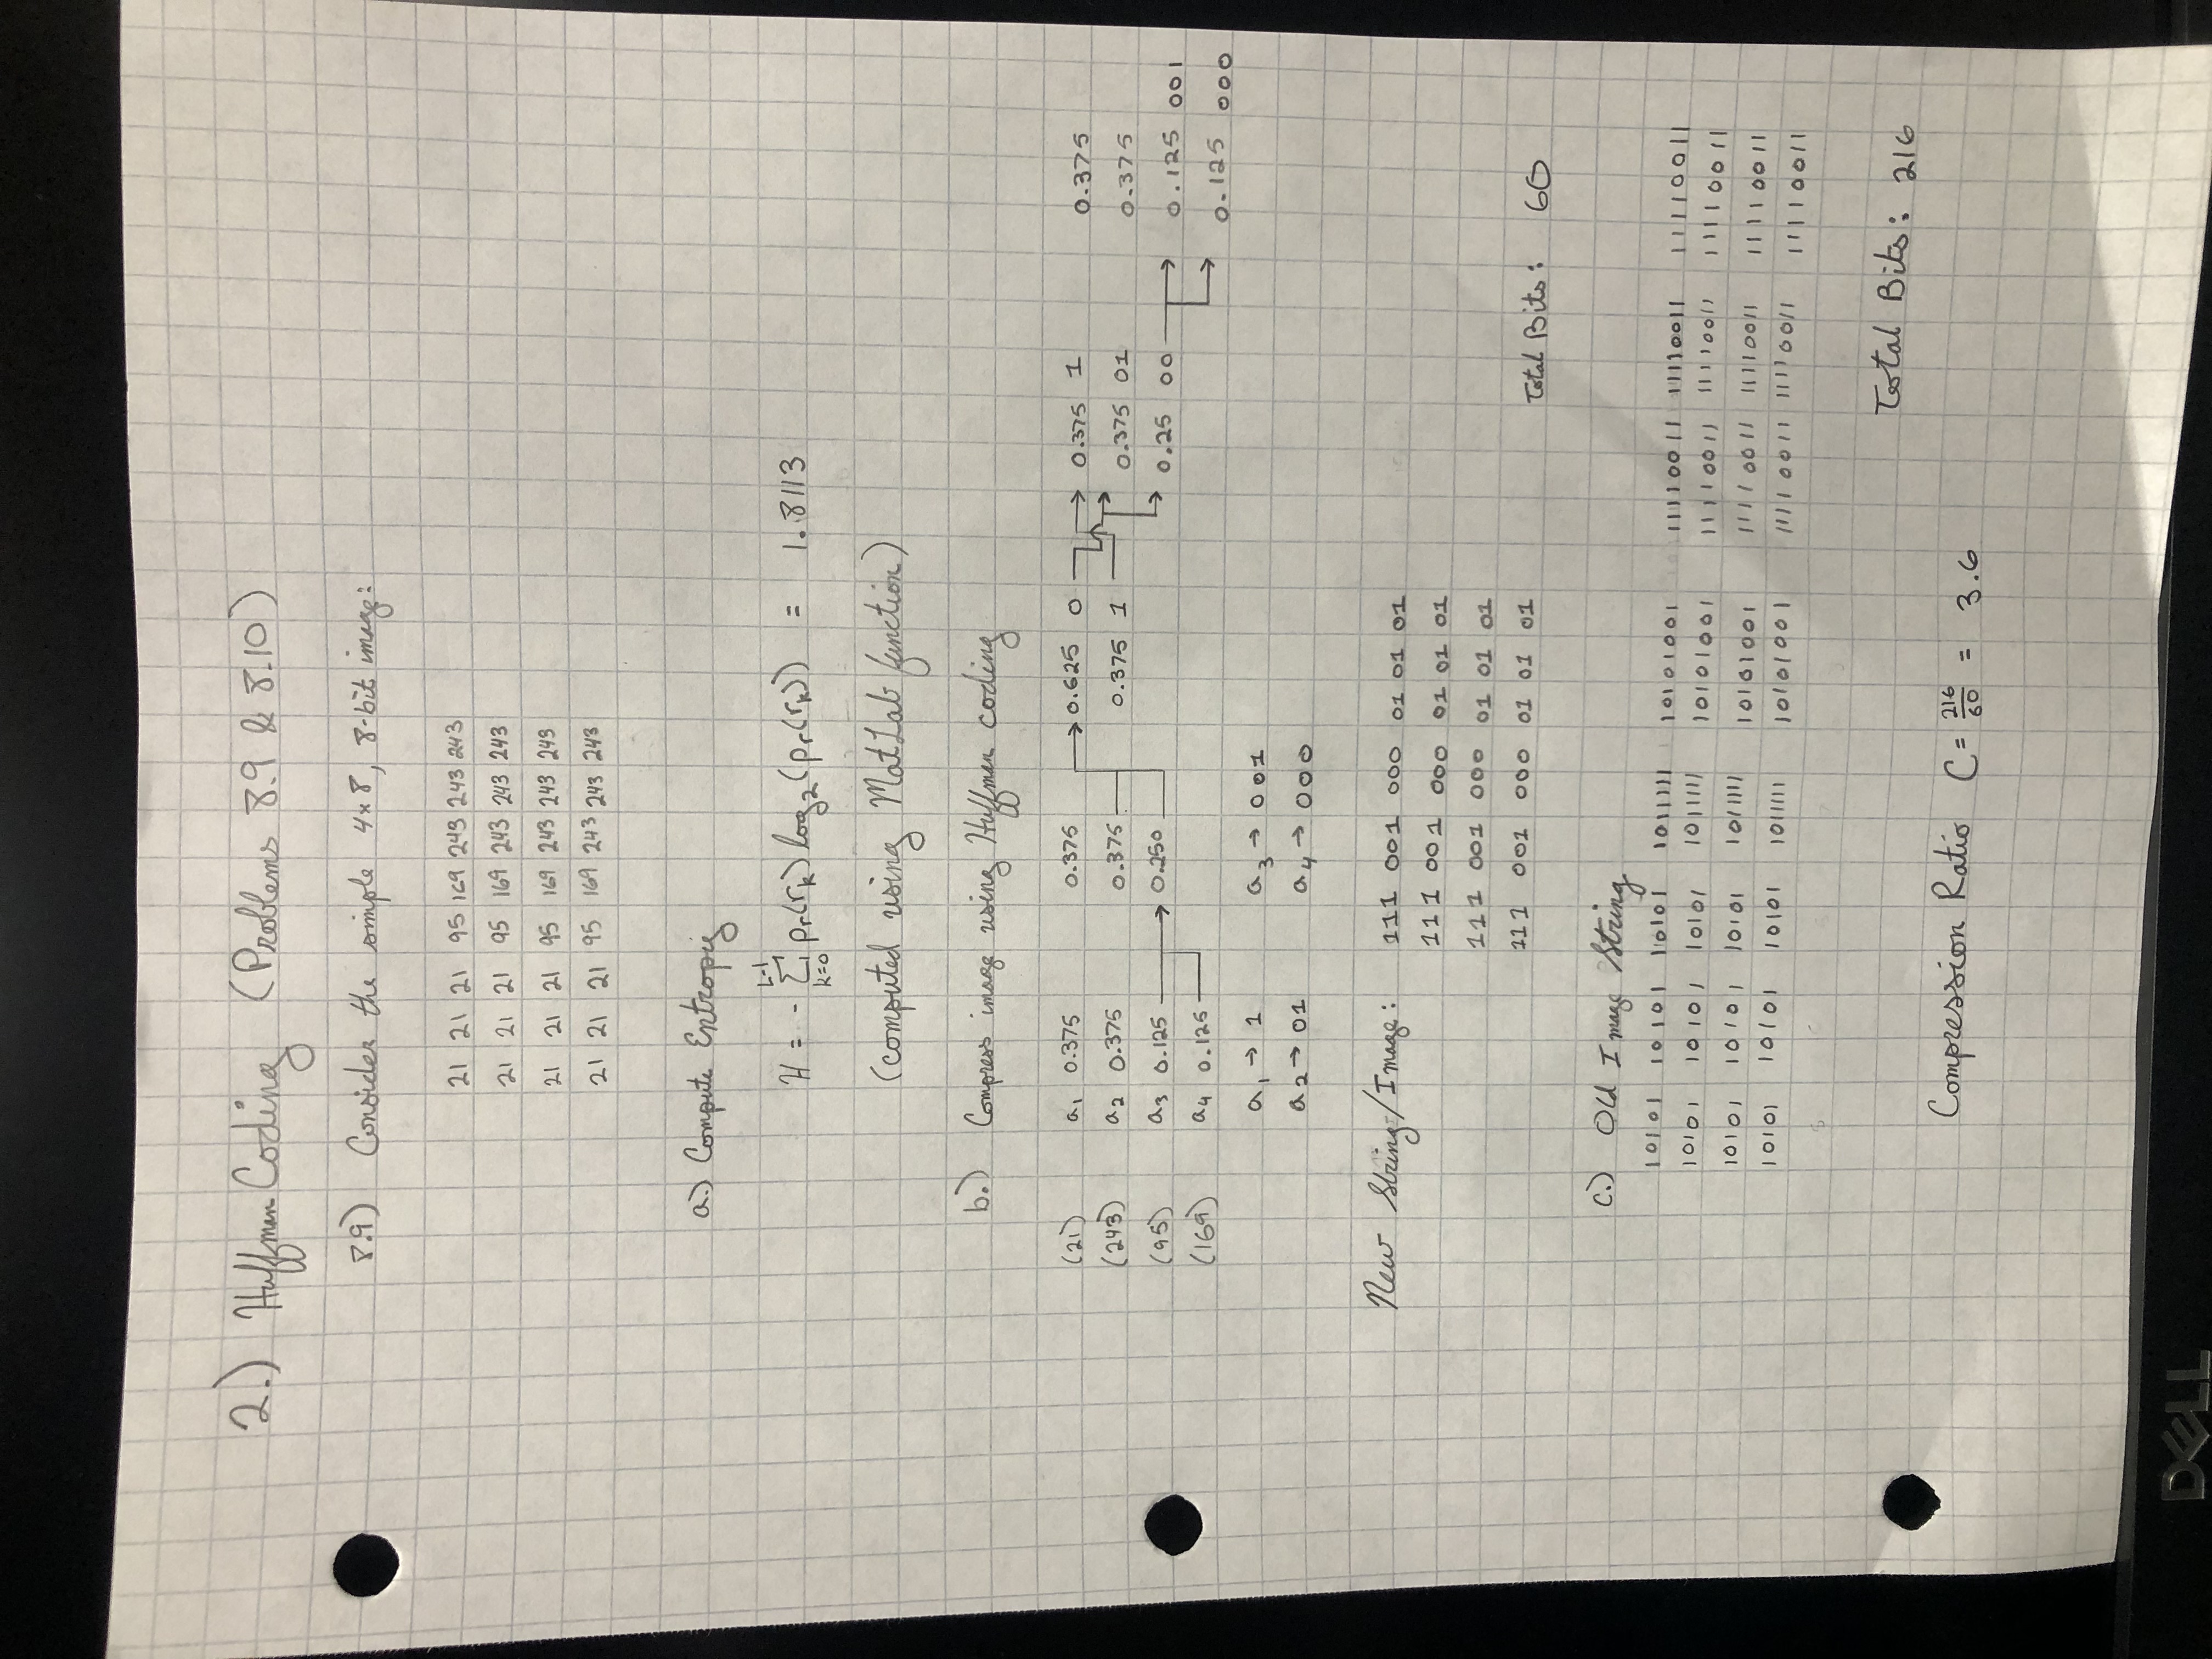 2.) Huffman Coding (Problems 8.9 & 8.10)
8.9) Consider the simple 4x8, 8-bit image:
21 21 21 95 169 243 243 243
21 21 21 95 169 243 243 243
21 21 21 95 169 243 243 243
21 21 21 95 169 243 243 243
a.) Compute Entropy
H = - ∑ₖ₌₀ᴸ⁻¹ pᵣ(rₖ) log₂(pᵣ(rₖ)) = 1.8113
(computed using MatLab function)
b.) Compress image using Huffman coding
(21) a₁ 0.375 0.375 → 0.625 0 → 0.375 1 0.375
(243) a₂ 0.375 0.375 0.375 1 → 0.375 01 0.375
(95) a₃ 0.125 → 0.250 → 0.25 00 → 0.125 001
(169) a₄ 0.125 → 0.125 000
a₁ → 1 a₃ → 001
a₂ → 01 a₄ → 000
New String/Image: 111 001 000 01 01 01
111 001 000 01 01 01
111 001 000 01 01 01
111 001 000 01 01 01
Total Bits: 60
c.) Old Image String
10101 10101 10101 1011111 10101001 11110011 11110011 11110011
10101 10101 10101 1011111 10101001 11110011 11110011 11110011
10101 10101 10101 1011111 10101001 11110011 11110011 11110011
10101 10101 10101 1011111 10101001 11110011 11110011 11110011
Total Bits: 216
Compression Ratio C = 216/60 = 3.6
DELL